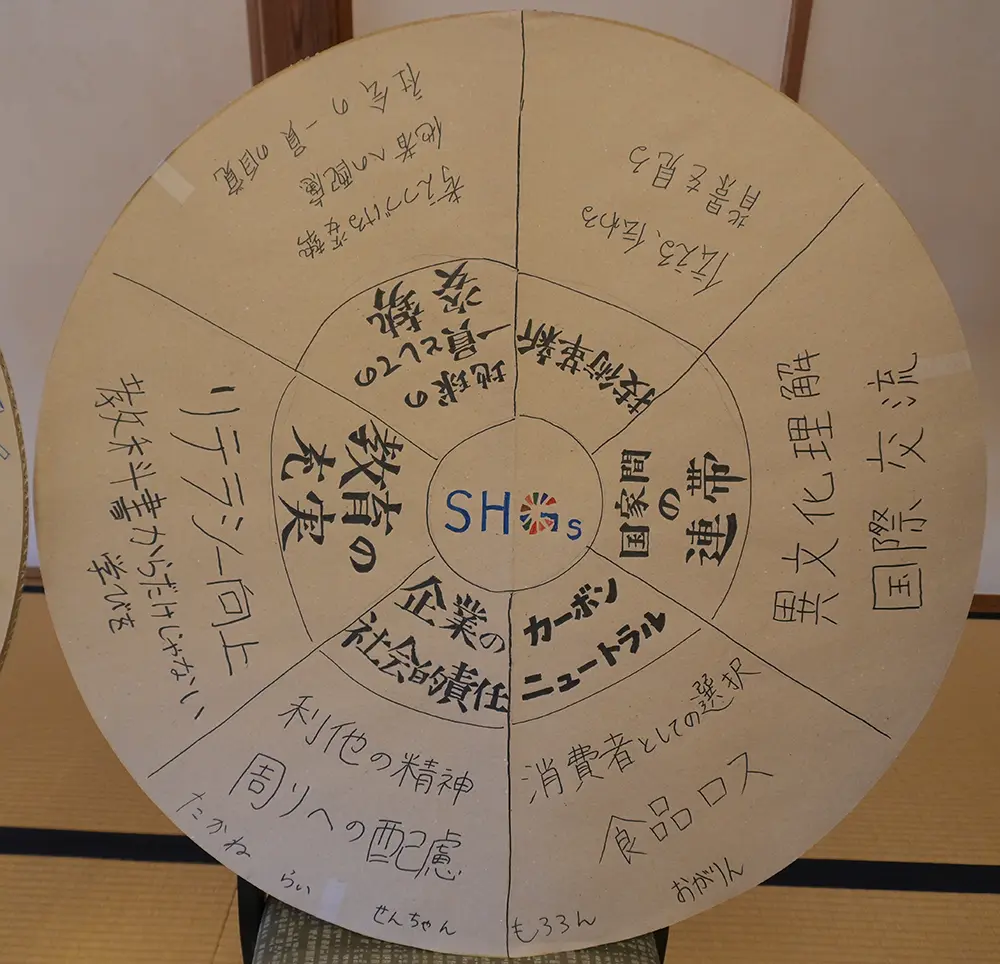 SHGs
技術革新
伝える、伝わる
背景を見る
国家間
の
連帯
異文化理解
国際交流
カーボン
ニュートラル
消費者としての選択
食品ロス
おがりん
もろろん
企業の
社会的責任
利他の精神
周りへの配慮
たかね
らい
せんちゃん
教育の
充実
リテラシー向上
教科書からだけじゃない
学びを
地球の
一員としての
姿勢
考えつづける姿勢
他者への配慮
社会の一員の自覚